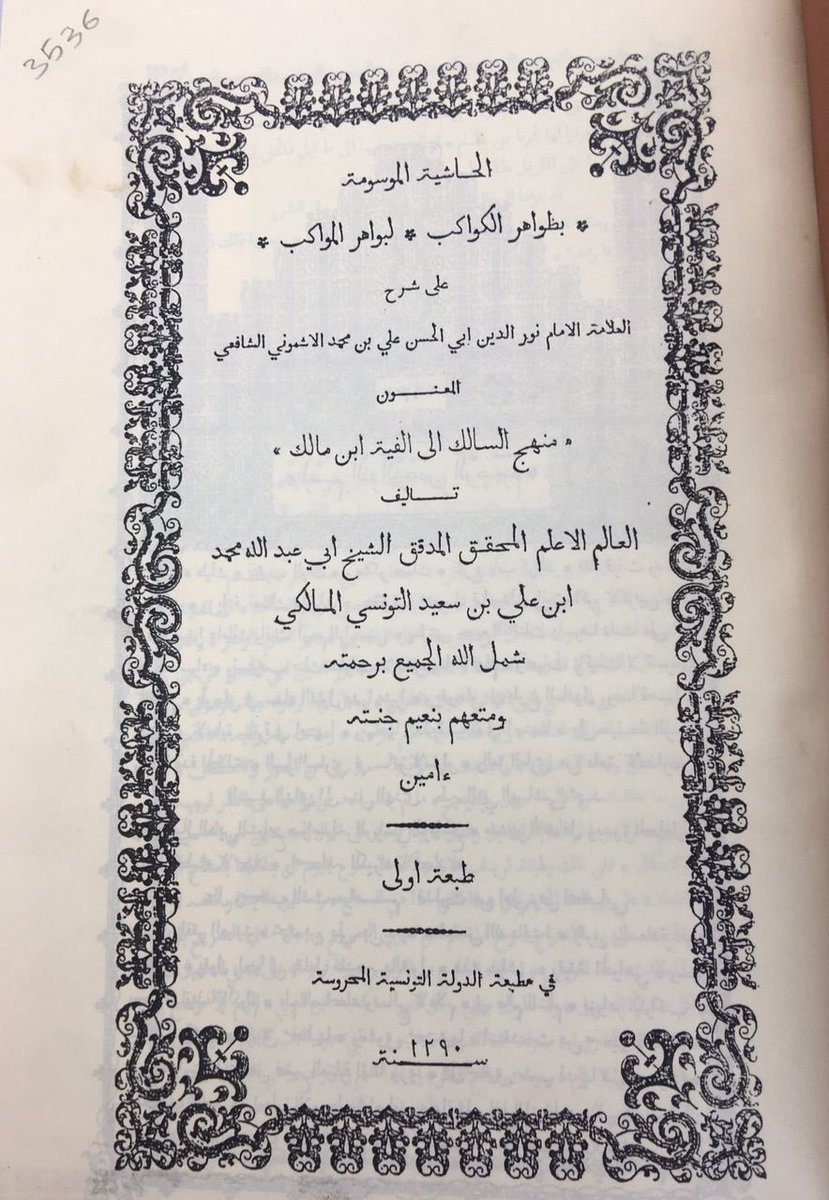 3536
الحاشية الموسومة
* بظواهر الكواكب * لبواهر المواكب *
على شرح
العلامة الامام نور الدين ابي الحسن علي بن محمد الاشموني الشافعي
المعنون
« منهج السالك الى الفية ابن مالك »
تاليف
العالم الاعلم المحقق المدقق الشيخ ابي عبد الله محمد
ابن علي بن سعيد التونسي المالكي
شمل الله الجميع برحمته
ومتعهم بنعيم جنته
ءامين
طبعة اولى
في مطبعة الدولة التونسية المحروسة
سنة ١٢٩٠